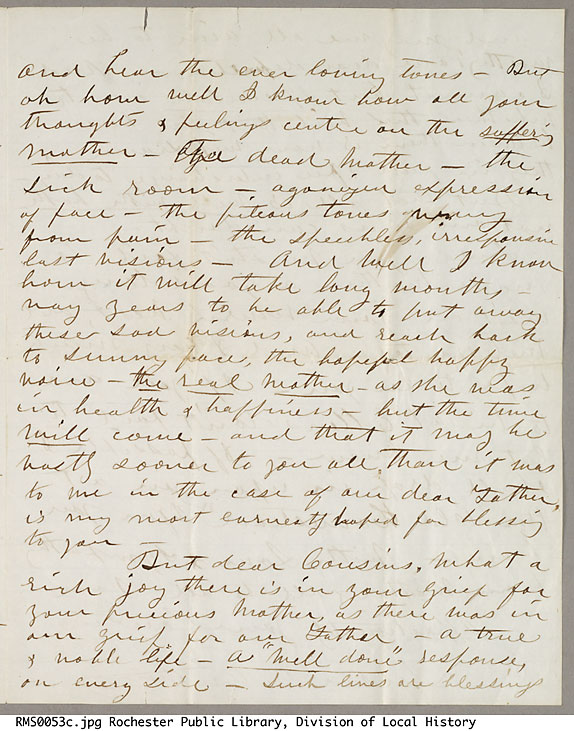 and hear the ever loving tones - But
oh how well I know how all your
thoughts & feelings centre on the suffering
mother - the dead Mother - the
sick room - agonized expression
of face - the piteous tones wrung
from pain - the speechless, irresponsive
last visions - And well I know
how it will take long months -
nay years to be able to put away
these sad visions, and reach back
to sunny face, the hopeful happy
voice - the real mother - as she was
in health & happiness - but the time
will come - and that it may be
vastly sooner to you all, than it was
to me in the case of our dear Father,
is my most earnestly hoped for blessing
to you -
But dear Cousins, what a
rich joy there is in your grief for
your precious Mother, as there was in
our grief for our Father - a true
& noble life - a "well done" response,
on every side - Such lives are blessings
RMS0053c.jpg Rochester Public Library, Division of Local History